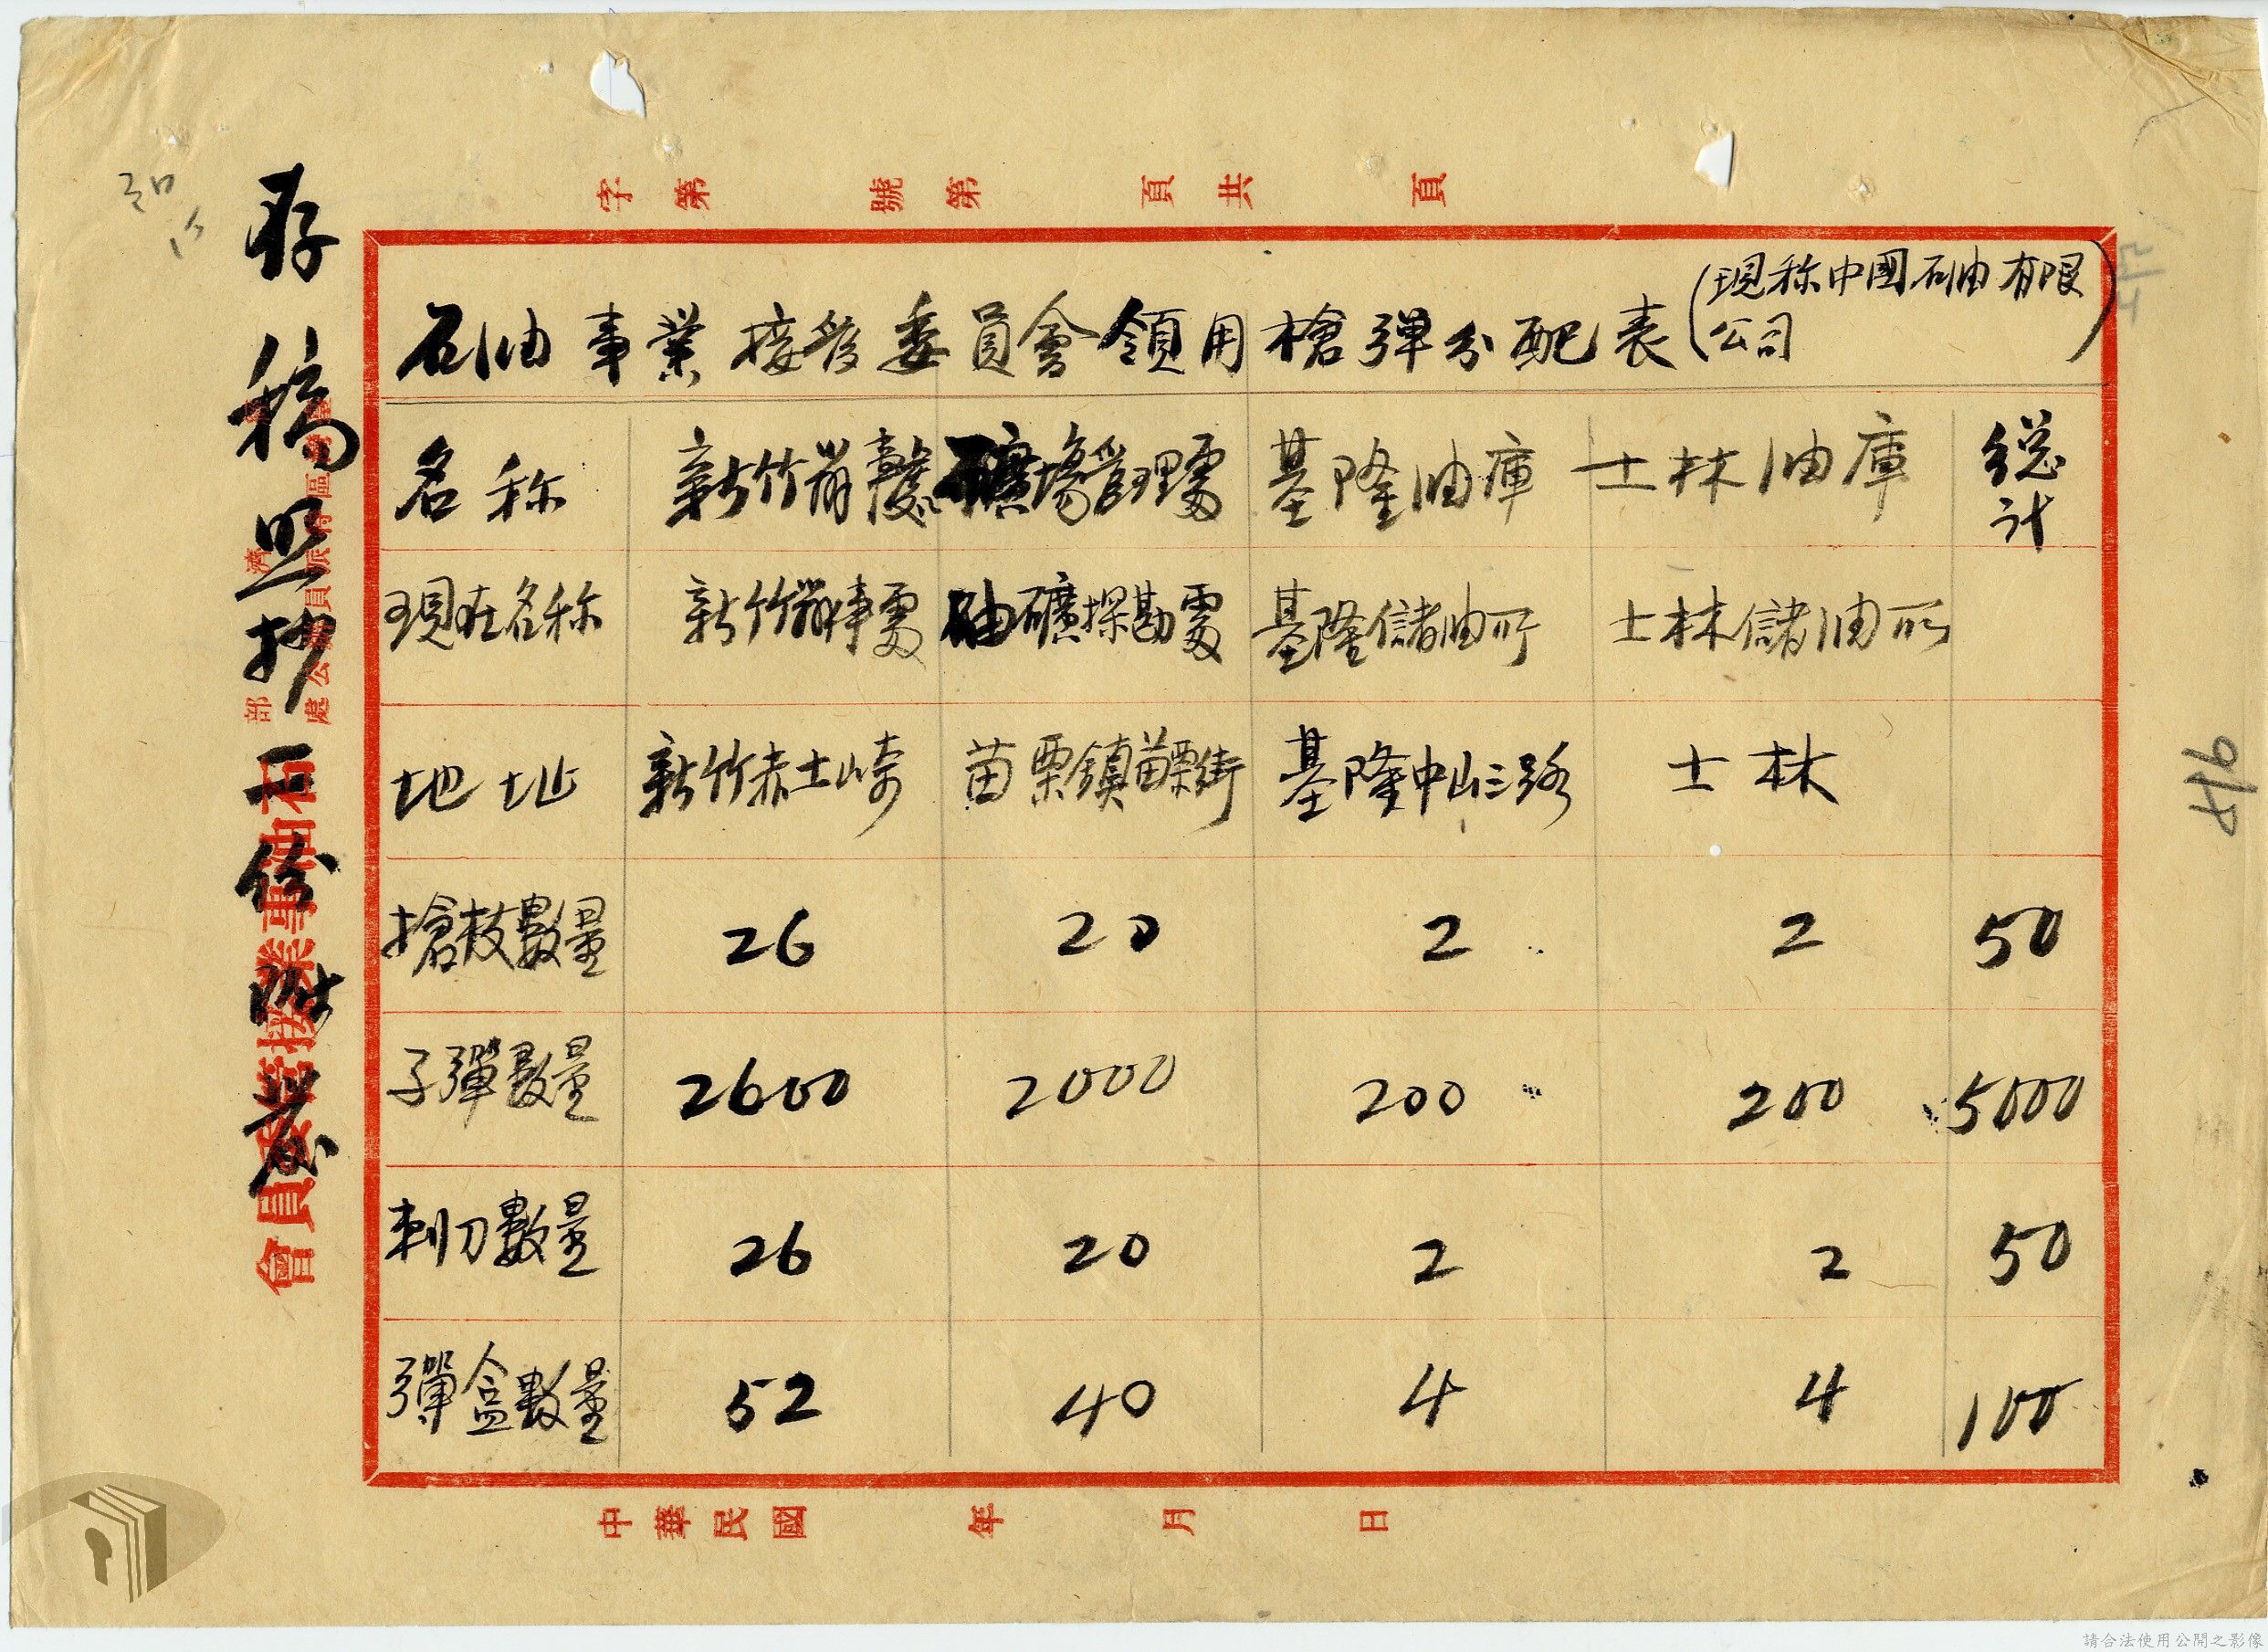 字第 號第 頁共 頁
石油事業接管委員會領用槍彈分配表(現称中國石油有限公司)
名称 新竹辦事處 礦場管理處 基隆油庫 士林油庫 総计
現在名称 新竹辦事處 油礦探勘處 基隆儲油所 士林儲油所
地址 新竹赤土崎 苗栗鎮苗栗街 基隆中山三路 士林
槍枝數量 26 20 2 2 50
子彈數量 2600 2000 200 200 5000
刺刀數量 26 20 2 2 50
彈盒數量 52 40 4 4 100
中華民國 年 月 日
存稿照抄一份附卷
石油事業接管委員會
請合法使用公開之影像